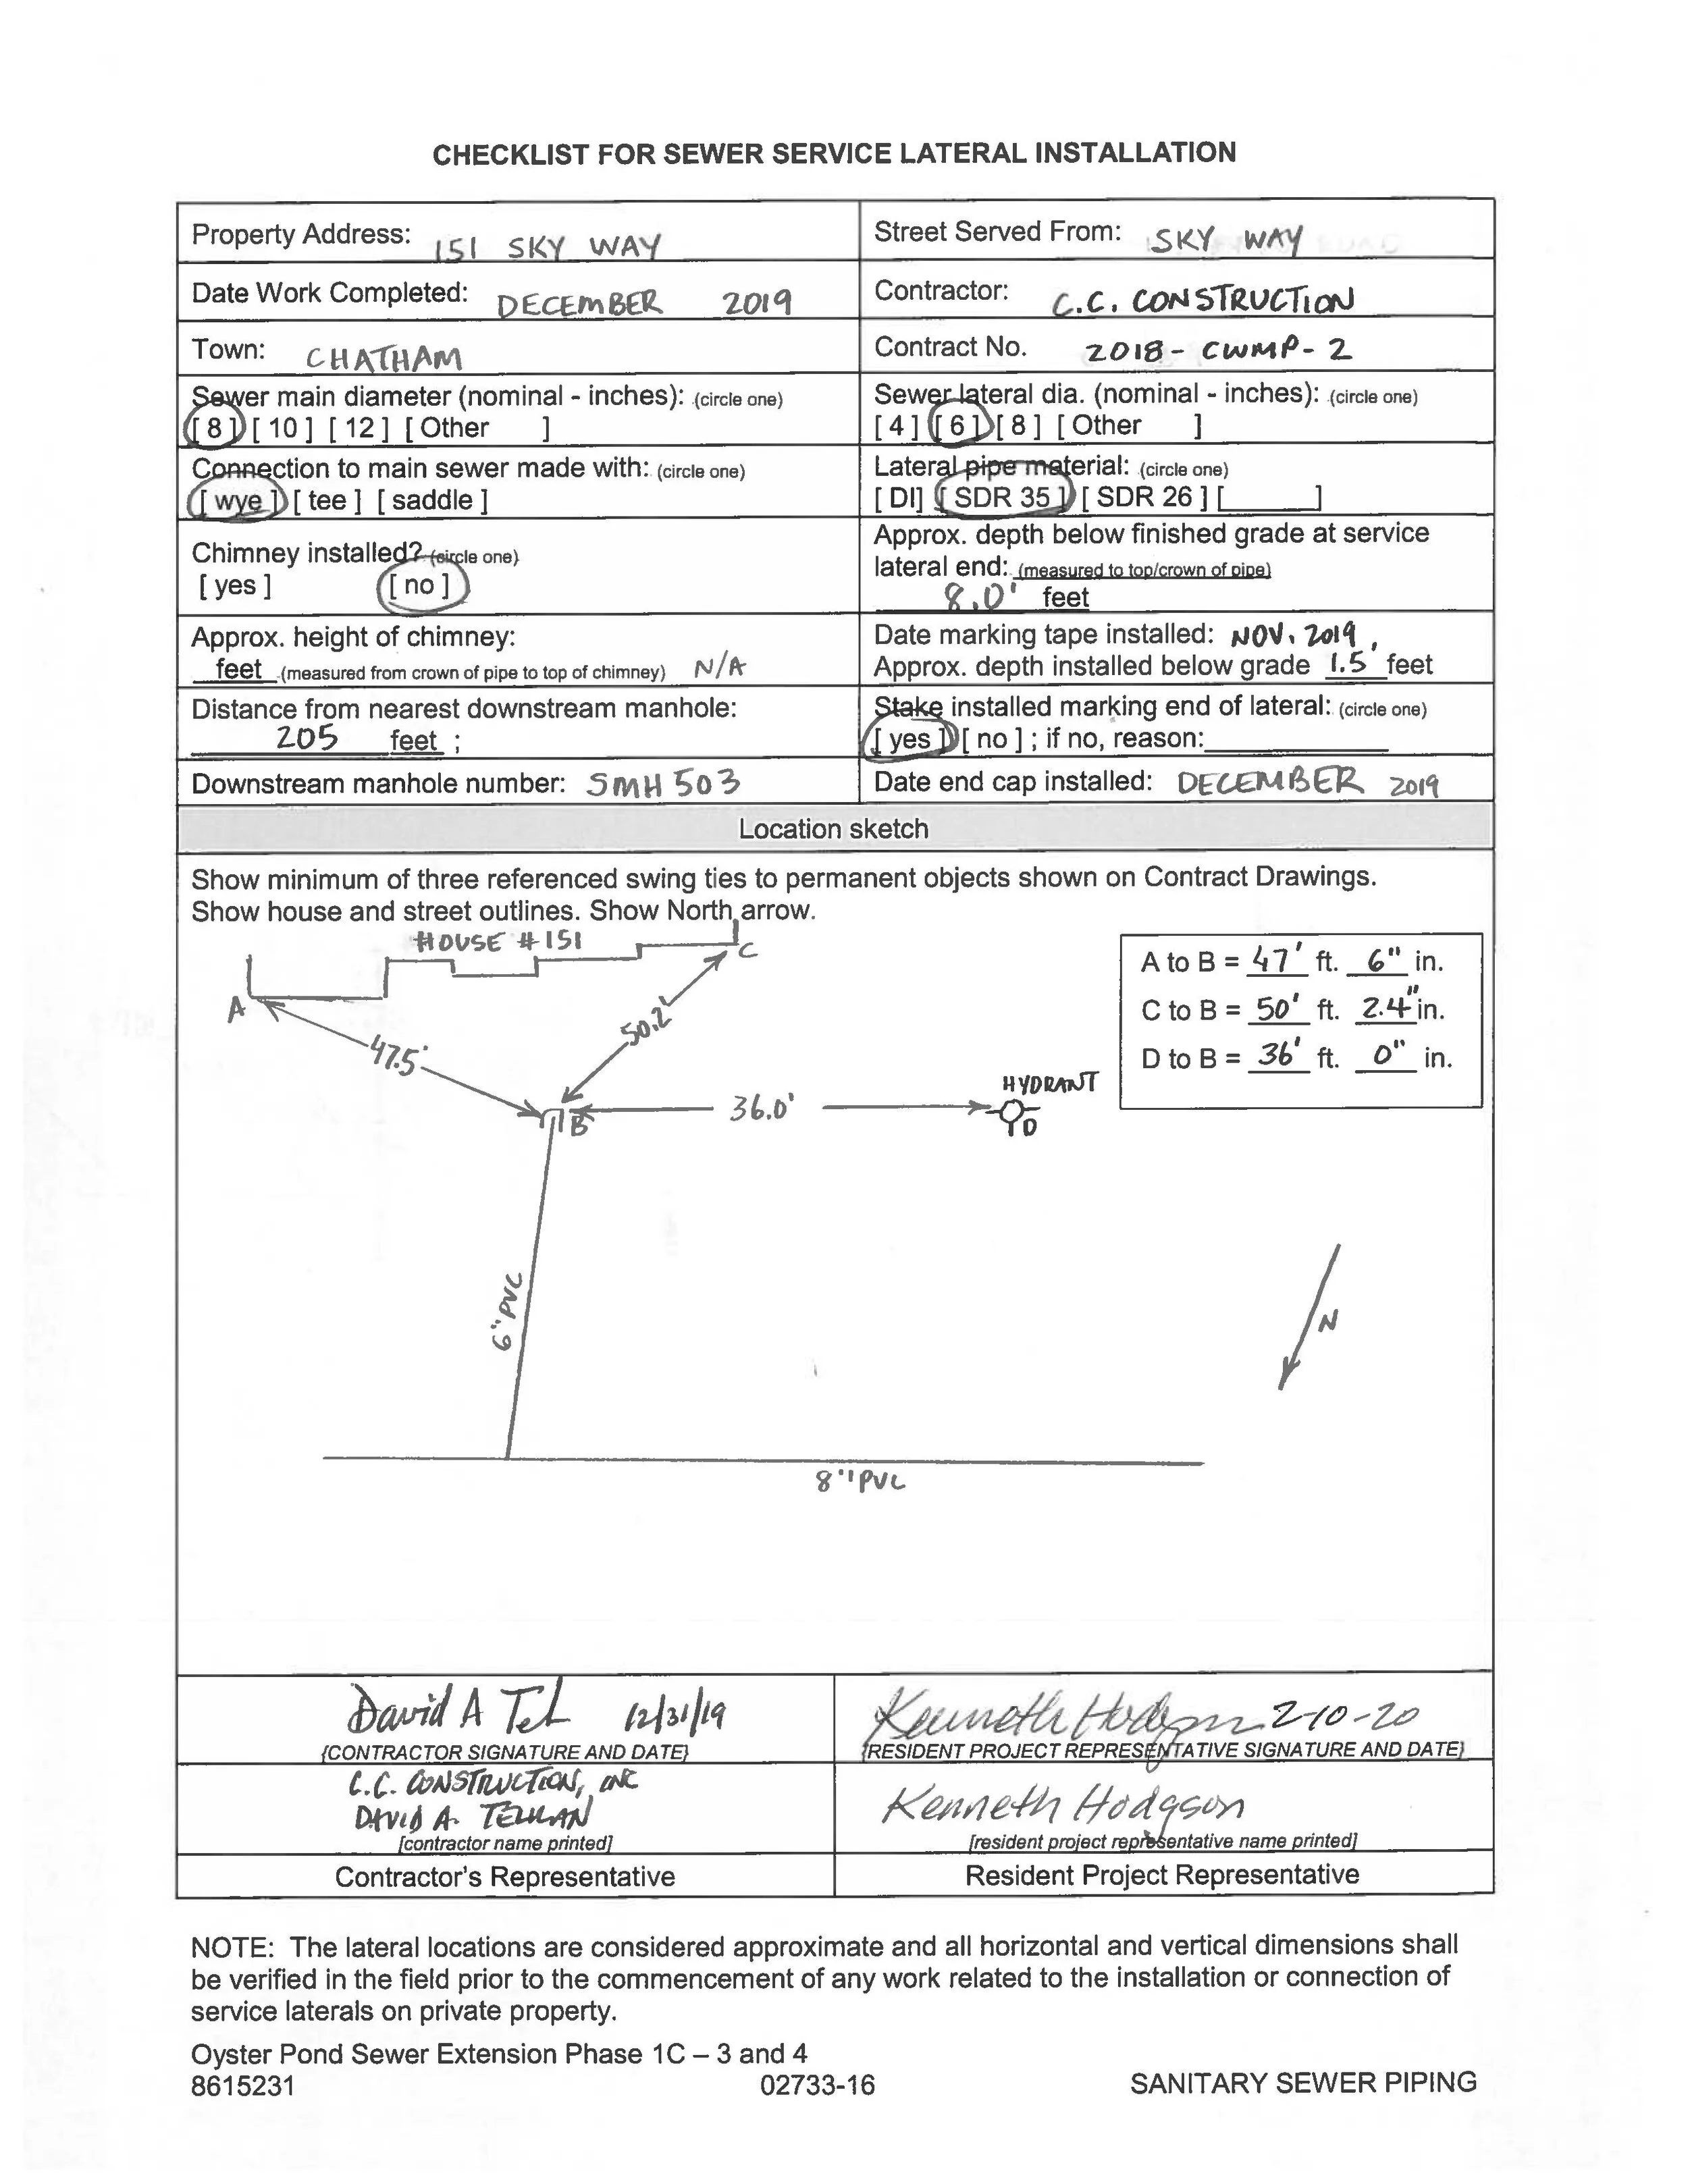 CHECKLIST FOR SEWER SERVICE LATERAL INSTALLATION
Property Address: 151 SKY WAY
Street Served From: SKY WAY
Date Work Completed: DECEMBER 2019
Contractor: C.C. CONSTRUCTION
Town: CHATHAM
Contract No. 2018-CWMP-2
Sewer main diameter (nominal - inches): (circle one)
[ 8 ] [ 10 ] [ 12 ] [ Other ]
Sewer lateral dia. (nominal - inches): (circle one)
[ 4 ] [ 6 ] [ 8 ] [ Other ]
Connection to main sewer made with: (circle one)
[ wye ] [ tee ] [ saddle ]
Lateral pipe material: (circle one)
[ DI] [ SDR 35 ] [ SDR 26 ] [______]
Chimney installed? (circle one)
[ yes ] [ no ]
Approx. depth below finished grade at service
lateral end: (measured to top/crown of pipe)
8.0' feet
Approx. height of chimney:
feet (measured from crown of pipe to top of chimney) N/A
Date marking tape installed: NOV. 2019,
Approx. depth installed below grade 1.5' feet
Distance from nearest downstream manhole:
205 feet ;
Stake installed marking end of lateral: (circle one)
[ yes ] [ no ] ; if no, reason:____________
Downstream manhole number: SMH 503
Date end cap installed: DECEMBER 2019
Location sketch
Show minimum of three referenced swing ties to permanent objects shown on Contract Drawings.
Show house and street outlines. Show North arrow.
HOUSE #151
A
C
47.5'
50.2'
B
36.0'
HYDRANT
D
A to B = 47' ft. 6" in.
C to B = 50' ft. 2.4" in.
D to B = 36' ft. 0" in.
6" PVC
N
8" PVC
David A Tel 12/31/19
{CONTRACTOR SIGNATURE AND DATE}
Kenneth Hodgson 2-10-20
{RESIDENT PROJECT REPRESENTATIVE SIGNATURE AND DATE}
C.C. CONSTRUCTION, INC
DAVID A.
[contractor name printed]
Kenneth Hodgson
[resident project representative name printed]
Contractor's Representative
Resident Project Representative
NOTE: The lateral locations are considered approximate and all horizontal and vertical dimensions shall
be verified in the field prior to the commencement of any work related to the installation or connection of
service laterals on private property.
Oyster Pond Sewer Extension Phase 1C – 3 and 4
8615231
02733-16
SANITARY SEWER PIPING